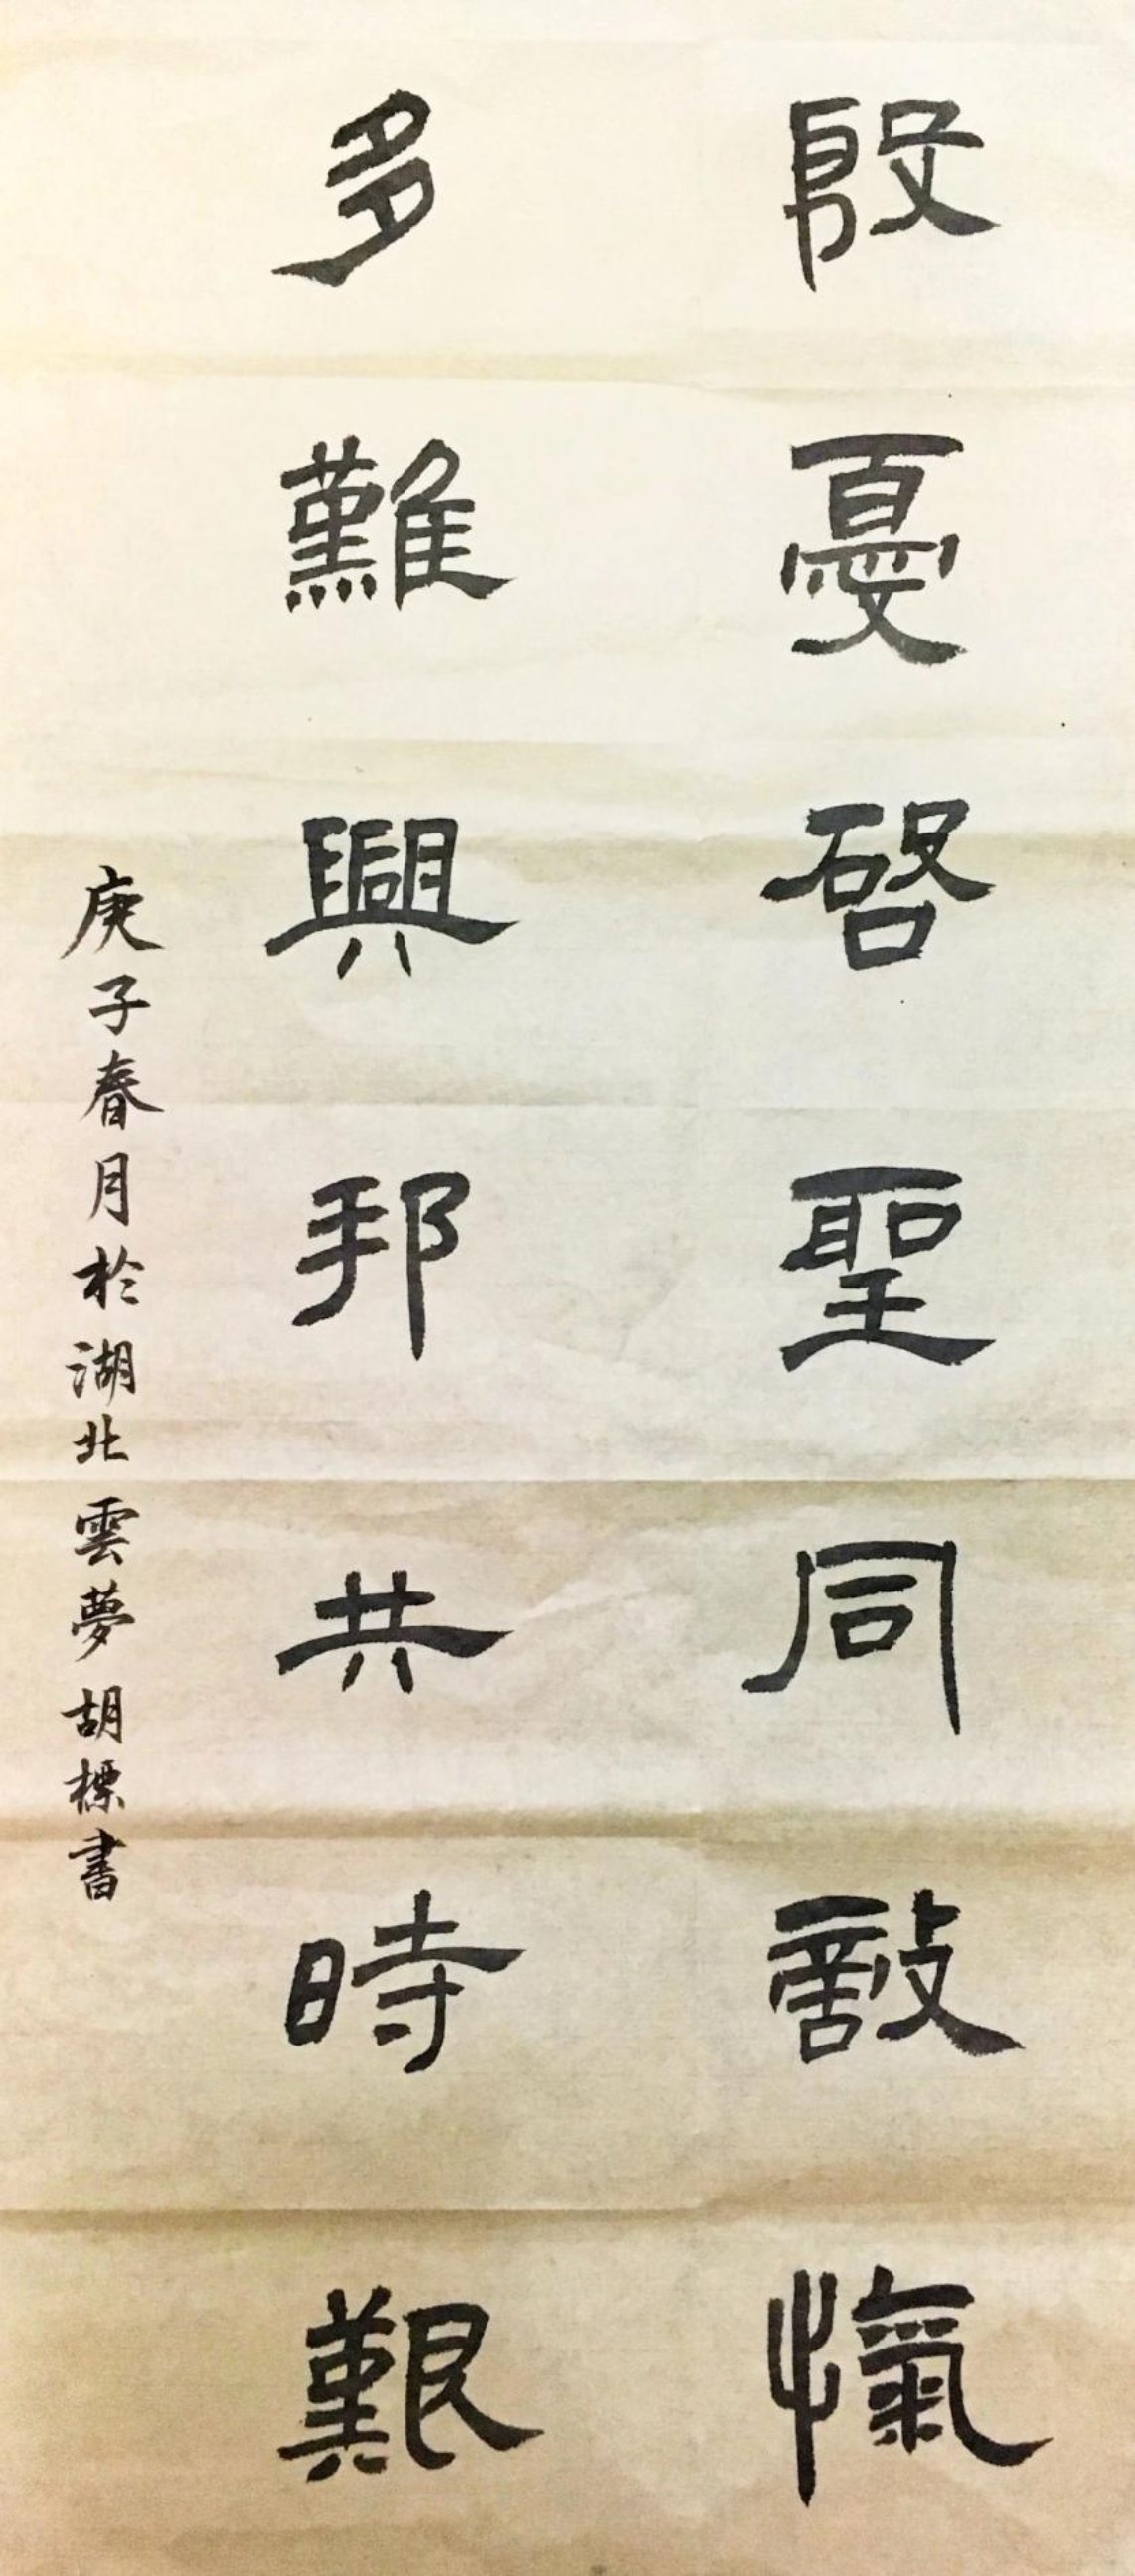 殷憂啓聖同敵愾
多難興邦共時艱
庚子春月於湖北雲夢胡標書